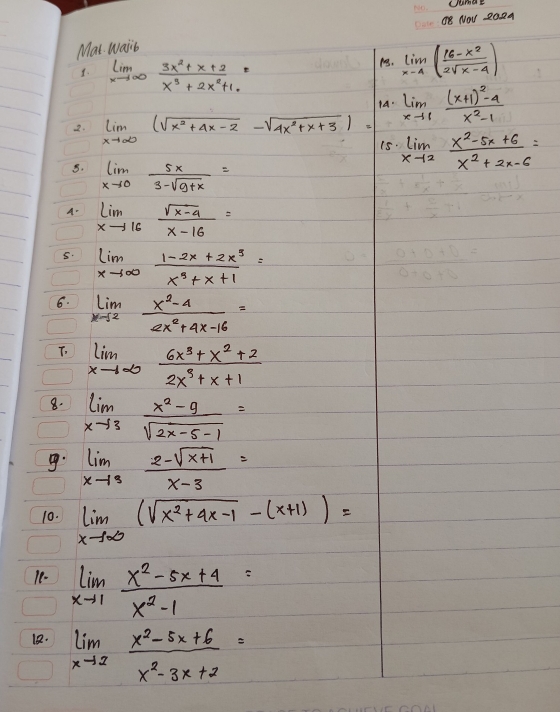 No.
Date. 08 Nov 2024
Mat. Wajib
1. Lim x→∞ (3x²+x+2)/(x³+2x²+1) =
2. Lim x→∞ (√(x²+4x-2) - √(4x²+x+3)) =
3. Lim x→0 5x/(3-√(9+x)) =
4. Lim x→16 √(x-4)/(x-16) =
5. Lim x→∞ (1-2x+2x³)/(x³+x+1) =
6. Lim x→2 (x²-4)/(2x²+4x-16) =
7. Lim x→∞ (6x³+x²+2)/(2x³+x+1)
8. Lim x→3 (x²-9)/√(2x-5-1) =
9. Lim x→3 (2-√(x+1))/(x-3) =
10. Lim x→∞ (√(x²+4x-1) - (x+1)) =
11. Lim x→1 (x²-5x+4)/(x²-1) =
12. Lim x→2 (x²-5x+6)/(x²-3x+2) =
13. Lim x→4 ((16-x²)/(2√(x-4)))
14. Lim x→1 ((x+1)²-4)/(x²-1)
15. Lim x→2 (x²-5x+6)/(x²+2x-6) =